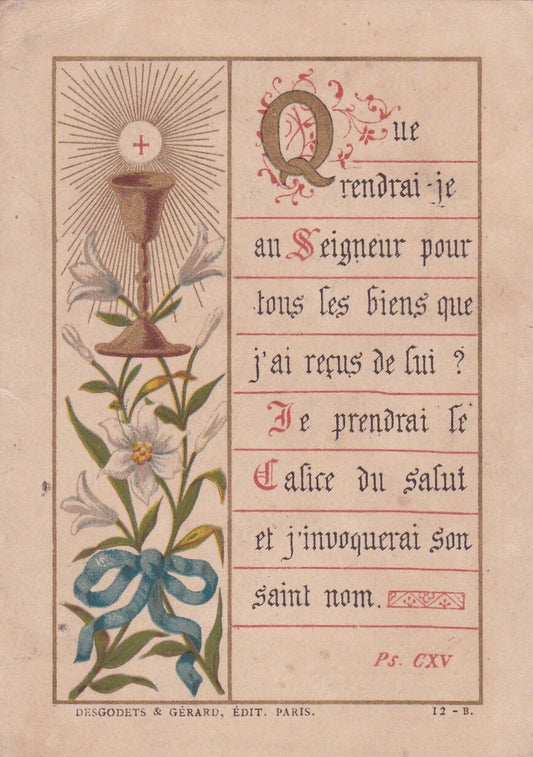 Que
rendrai-je
au Seigneur pour
tous les biens que
j'ai reçus de lui ?
Je prendrai le
Calice du salut
et j'invoquerai son
saint nom.
Ps. CXV
DESGODETS & GÉRARD, ÉDIT. PARIS. 12 - B.